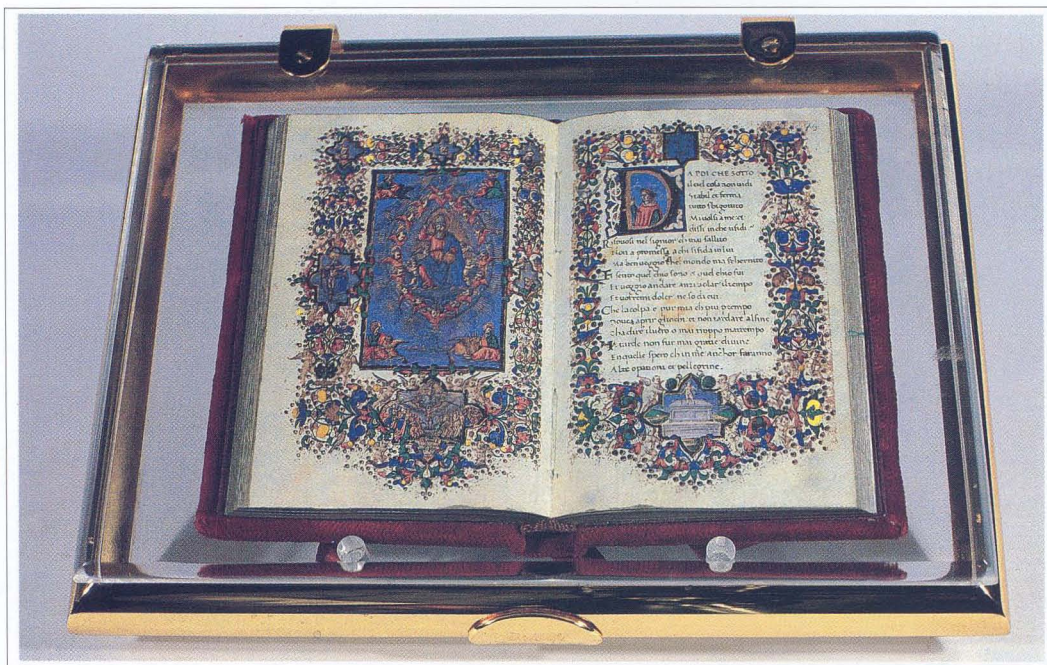 D
A POI CHE SOTTO
il ciel cosa non vidi
stabil et ferma
tutto sbigotito
Mi volsi a me et
dissi in che ti fidi
Risposi nel signor ch mai fallito
Non a promessa a chi si fida in lui
Ma ben veggio chel mondo ma schernito
Et sento quel chio sono et quel chio fui
Et veggio andare anzi volar il tempo
Et doler ne so di cui
Che la colpa e pur mia ch piu per tempo
aprir gliochi et non tardare al fine
cha dire il vero o mai troppo mattempo
Ma tarde non fur mai gratie divine
En quelle spero ch in me anchor faranno
Alte operationi et pellegrine.